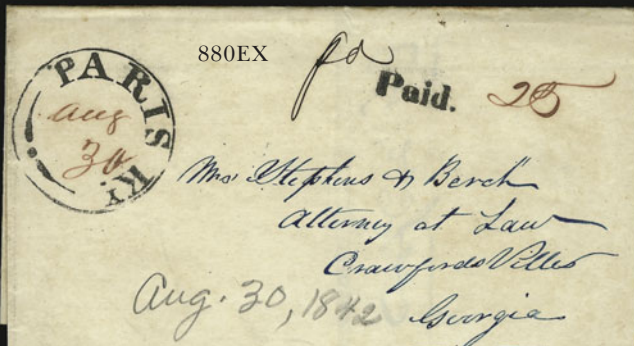 880EX
pd
Paid. 25
PARIS KY
Aug
30
Mrs. Stephens & Berch
Attorney at Law
Crawfords Ville
Georgia
Aug. 30, 1842